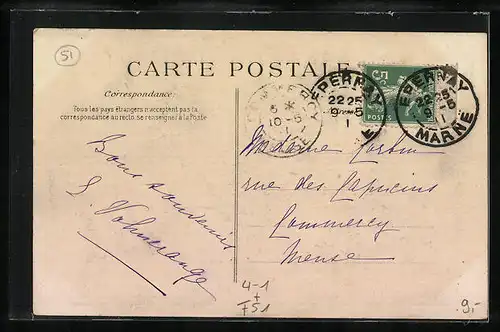 51
CARTE POSTALE
Correspondance
Tous les pays étrangers n'acceptent pas la
correspondance au recto, se renseigner à la Poste
5
POSTES
EPERNAY
22 25
9-5
1
EPERNAY
22 25
9-5
1
MARNE
COMMERCY
5 *
10-5
Bons souvenirs
Madame
rue des Capucins
Commercy
Meuse
4-1
+
F51
9.-